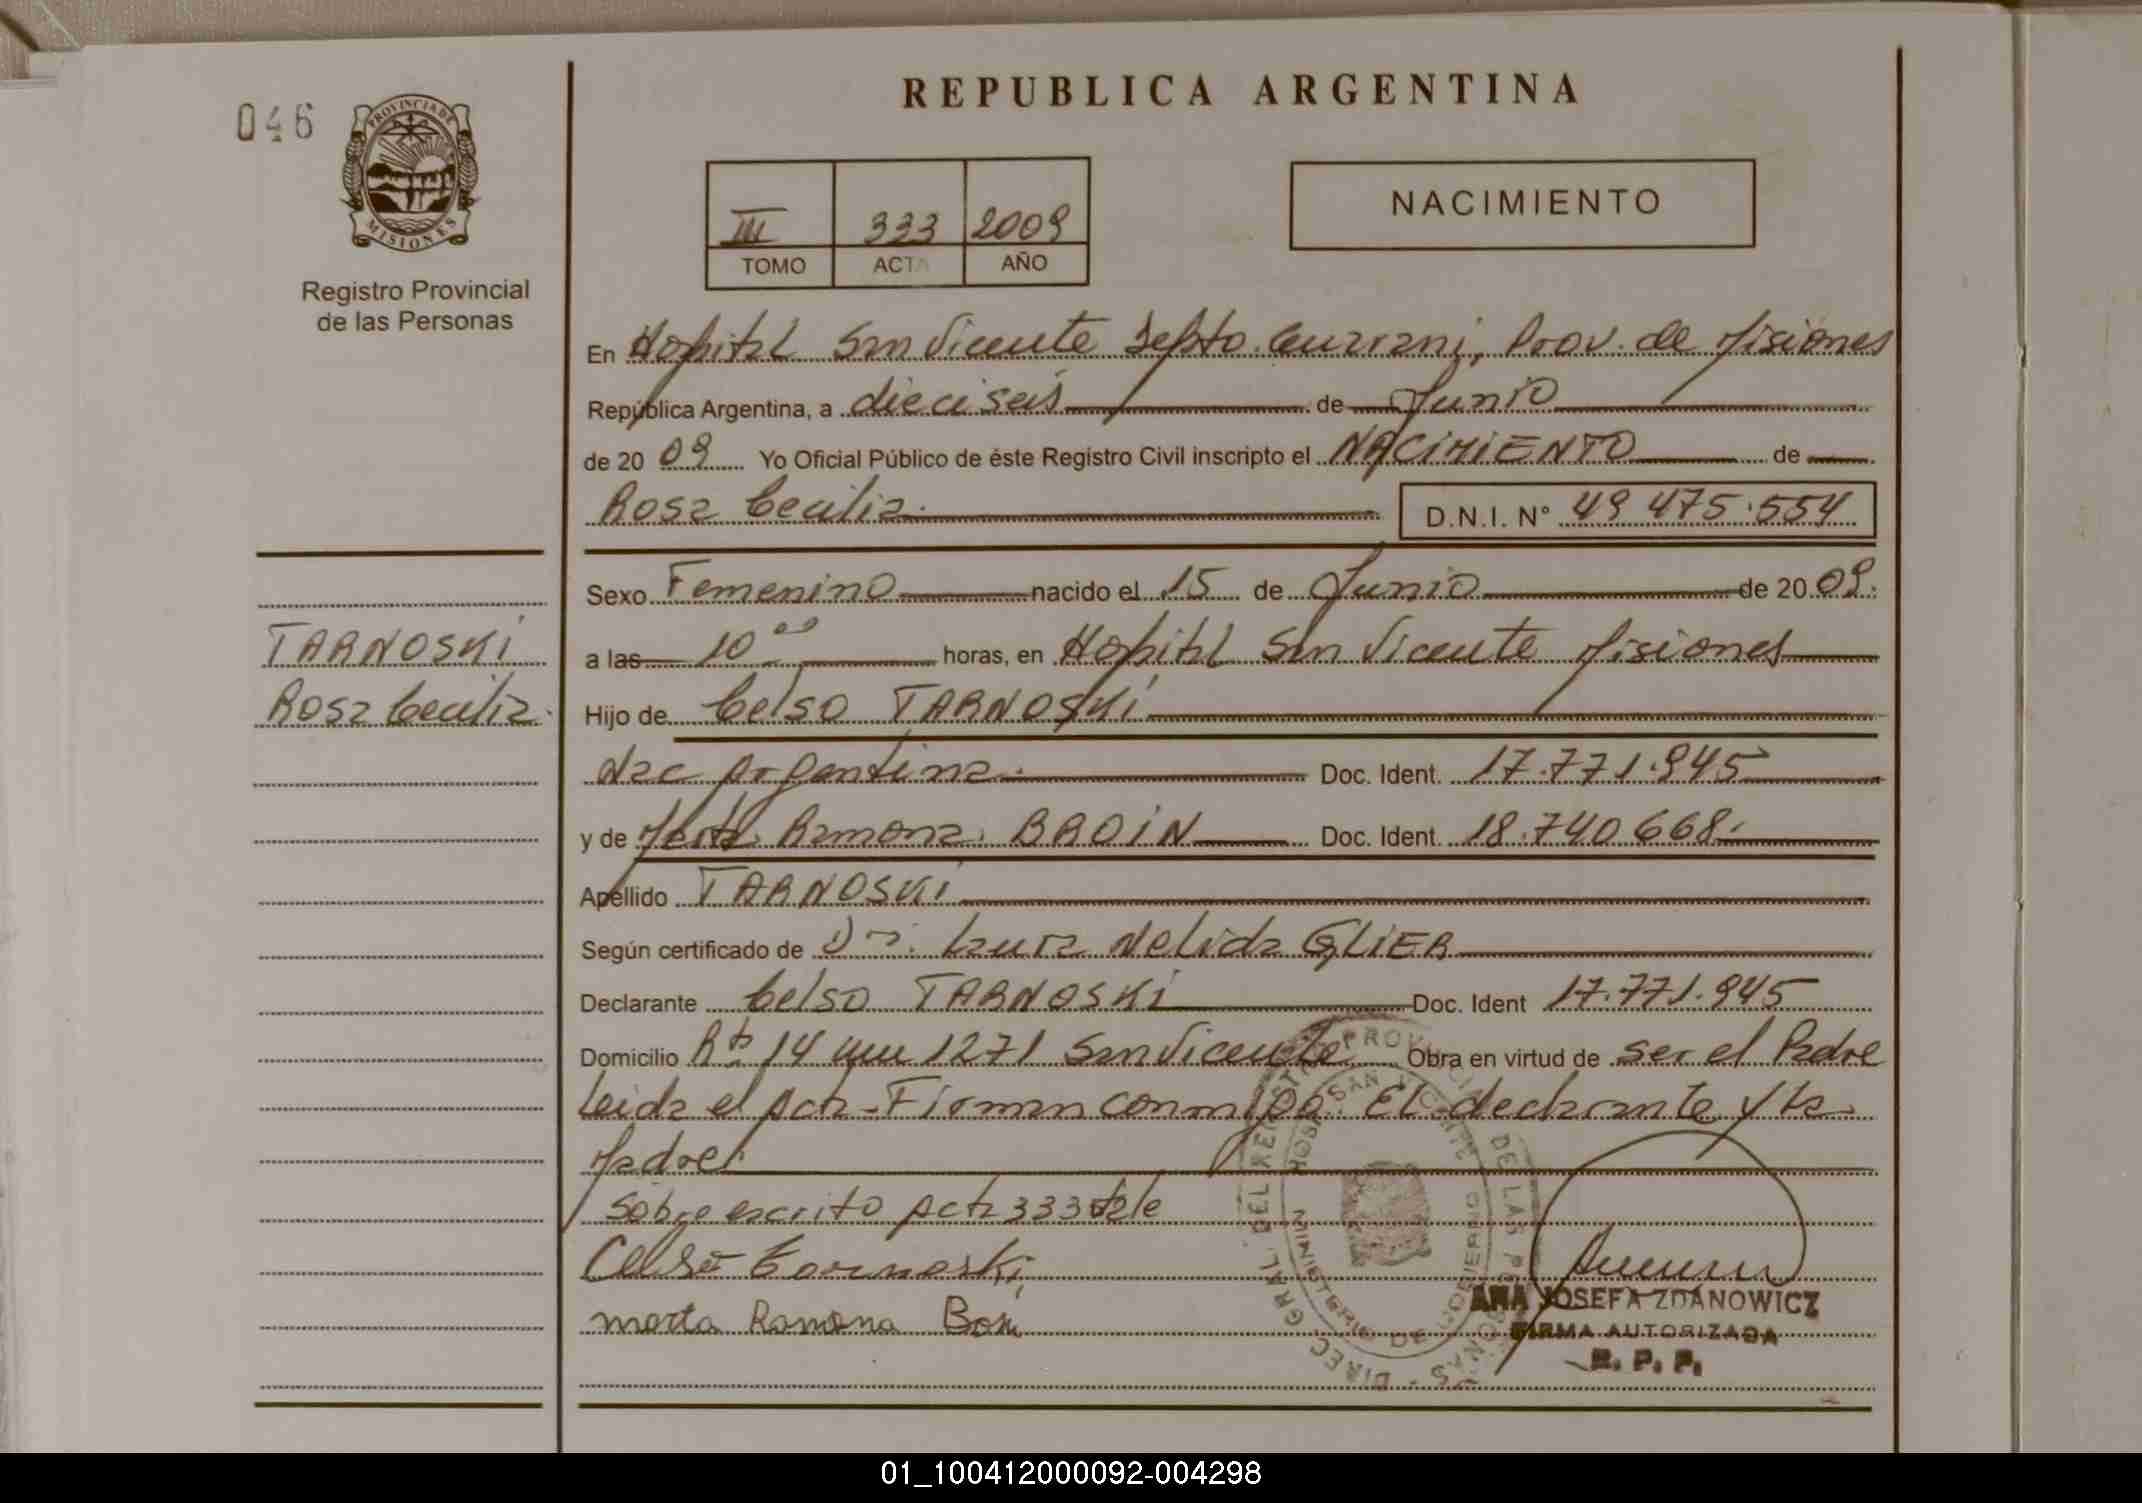 REPUBLICA ARGENTINA
046
PROVINCIA DE
MISIONES
Registro Provincial
de las Personas
III 333 2009
TOMO ACTA AÑO
NACIMIENTO
En Hospital San Vicente Depto. Guarani, Prov. de Misiones
República Argentina, a dieciseis de Junio
de 20 09 Yo Oficial Público de éste Registro Civil inscripto el NACIMIENTO de
Rosa Cecilia. D.N.I. N° 49 475.554
Sexo Femenino nacido el 15 de Junio de 20 09.
a las 10 00 horas, en Hospital San Vicente Misiones
Hijo de Celso TARNOSKI
nac Argentina. Doc. Ident. 17.771.945
y de Marta Ramona BROIN Doc. Ident. 18.740.668.
Apellido TARNOSKI
Según certificado de Dra. Laura Nelida GLIER
Declarante Celso TARNOSKI Doc. Ident 17.771.945
Domicilio Rta 14 km 1271 San Vicente Obra en virtud de ser el Padre
Leida el Acta - Firman conmigo. El declarante y la
Madre.
Sobre escrito Acta 333 vale
Celso Tarnoski
marta Ramona
ANA JOSEFA ZDANOWICZ
FIRMA AUTORIZADA
R. P. P.
DIREC GRAL DEL REGISTRO PROVINCIAL DE LAS PERSONAS
HOSP SAN VICENTE
MINISTERIO DE GOBIERNO
TARNOSKI
Rosa Cecilia.
01_100412000092-004298